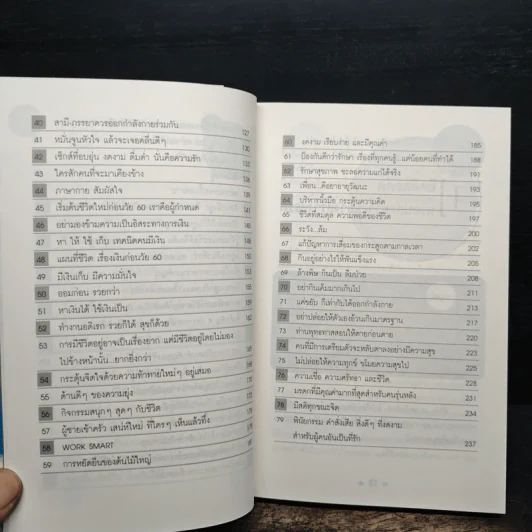 40 สามี-ภรรยาควรออกกำลังกายร่วมกัน 127
41 หมั่นจูนหัวใจ แล้วจะเจอคลื่นดีๆ 130
42 เซ็กส์ที่อบอุ่น งดงาม ลื่มต่ำ นั่นคือความรัก 133
43 ใครสักคนที่จะมาเคียงข้าง
44 ภาษากาย สัมผัสใจ
45 เริ่มต้นชีวิตใหม่ก่อนวัย 60 เราคือผู้กำหนด
46 อย่ามองข้ามความเป็นอิสระทางการเงิน
47 หา ให้ ใช้ เก็บ เทคนิคคนมีเงิน
48 แผนที่ชีวิต เรื่องเงินก่อนวัย 60
49 มีเงินเก็บ มีความมั่นใจ
50 ออมก่อน รวยกว่า
51 หาเงินได้ ใช้เงินเป็น
52 ทำงานอดิเรก รวยก็ได้ สุขก็ด้วย
53 การมีชีวิตอยู่อาจเป็นเรื่องยาก แต่มีชีวิตอยู่โดยไม่มอง
ไปข้างหน้านั้น...ยากยิ่งกว่า
54 กระตุ้นจิตใจด้วยความท้าทายใหม่ๆ อยู่เสมอ
55 ด้านดีๆ ของความยุ่ง
56 กิจกรรมสนุกๆ สุดๆ กับชีวิต
57 ผู้ชายเข้าครัว เสน่ห์ใหม่ ที่ใครๆ เห็นแล้วทึ่ง
58 WORK SMART
59 การหยัดยืนของต้นไม้ใหญ่
60 งดงาม เรียบง่าย และมีคุณค่า 185
61 ป้องกันดีกว่ารักษา เรื่องที่ทุกคนรู้...แต่น้อยคนที่ทำได้ 188
62 รักษาสุขภาพ ชะลอความแก่ได้จริง 191
63 เพื่อน...คือยาอายุวัฒนะ 193
64 บริหารนิ้วมือ กระตุ้นความคิด 195
65 ชีวิตที่สมดุล ความพอดีของชีวิต 197
66 ระวัง...ล้ม 200
67 แก้ปัญหาการเสื่อมของกระดูกตามกาลเวลา 202
68 กินอยู่อย่างไรให้ฟันแข็งแรง 205
69 ล้างพิษ กินเป็น ลืมป่วย 208
70 อย่ากินเค็มมากเกินไป 211
71 แค่ขยับ ก็เท่ากับได้ออกกำลังกาย 213
72 อย่าปล่อยให้ตัวเองอ้วนเกินมาตรฐาน 215
73 ท่านพุทธทาสสอนให้ตายก่อนตาย 219
74 คนที่มีการเตรียมตัวจะหลับตาลงอย่างมีความสุข 222
75 ไม่ปล่อยให้ความทุกข์ ขโมยความสุขไป 225
76 ความเชื่อ ความศรัทธา และชีวิต 229
77 มรดกที่มีคุณค่ามากที่สุดสำหรับคนรุ่นหลัง 231
78 มีสติทุกขณะจิต 234
79 พินัยกรรม คำสั่งเสีย สิ่งดีๆ ที่งดงาม
สำหรับผู้คนอันเป็นที่รัก 237